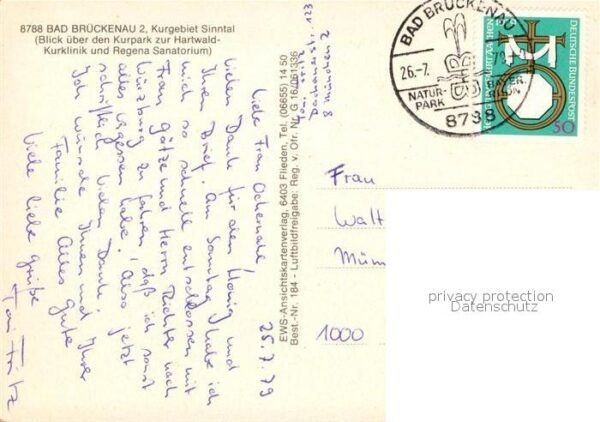 8788 BAD BRÜCKENAU 2, Kurgebiet Sinntal
(Blick über den Kurpark zur Hartwald-
Kurklinik und Regena Sanatorium)
25.7.79
Liebe Frau
Vielen Dank für den Honig und
Ihren Brief. Am Sonntag habe ich
mich so schnell entschlossen mit
Frau Götze und Herrn Richter nach
Würzburg zu fahren, daß ich sonst
alles vergessen habe. Also jetzt
schriftlich vielen Dank.
Ich wünsche Ihnen und Ihrer
Familie alles Gute
Viele liebe Grüße
Fritz
Dachauerstr. 123
8 München 2
EWS-Ansichtskartenverlag, 6403 Flieden, Tel. (06655) 14 50
Best.-Nr. 184 - Luftbildfreigabe: Reg. v. Ofr. Nr. G 16/061336
BAD BRÜCKENAU
26.-7.
NATUR-
PARK
8788
DEUTSCHE BUNDESPOST
50
Frau
Walt
Mün
1000
privacy protection
Datenschutz